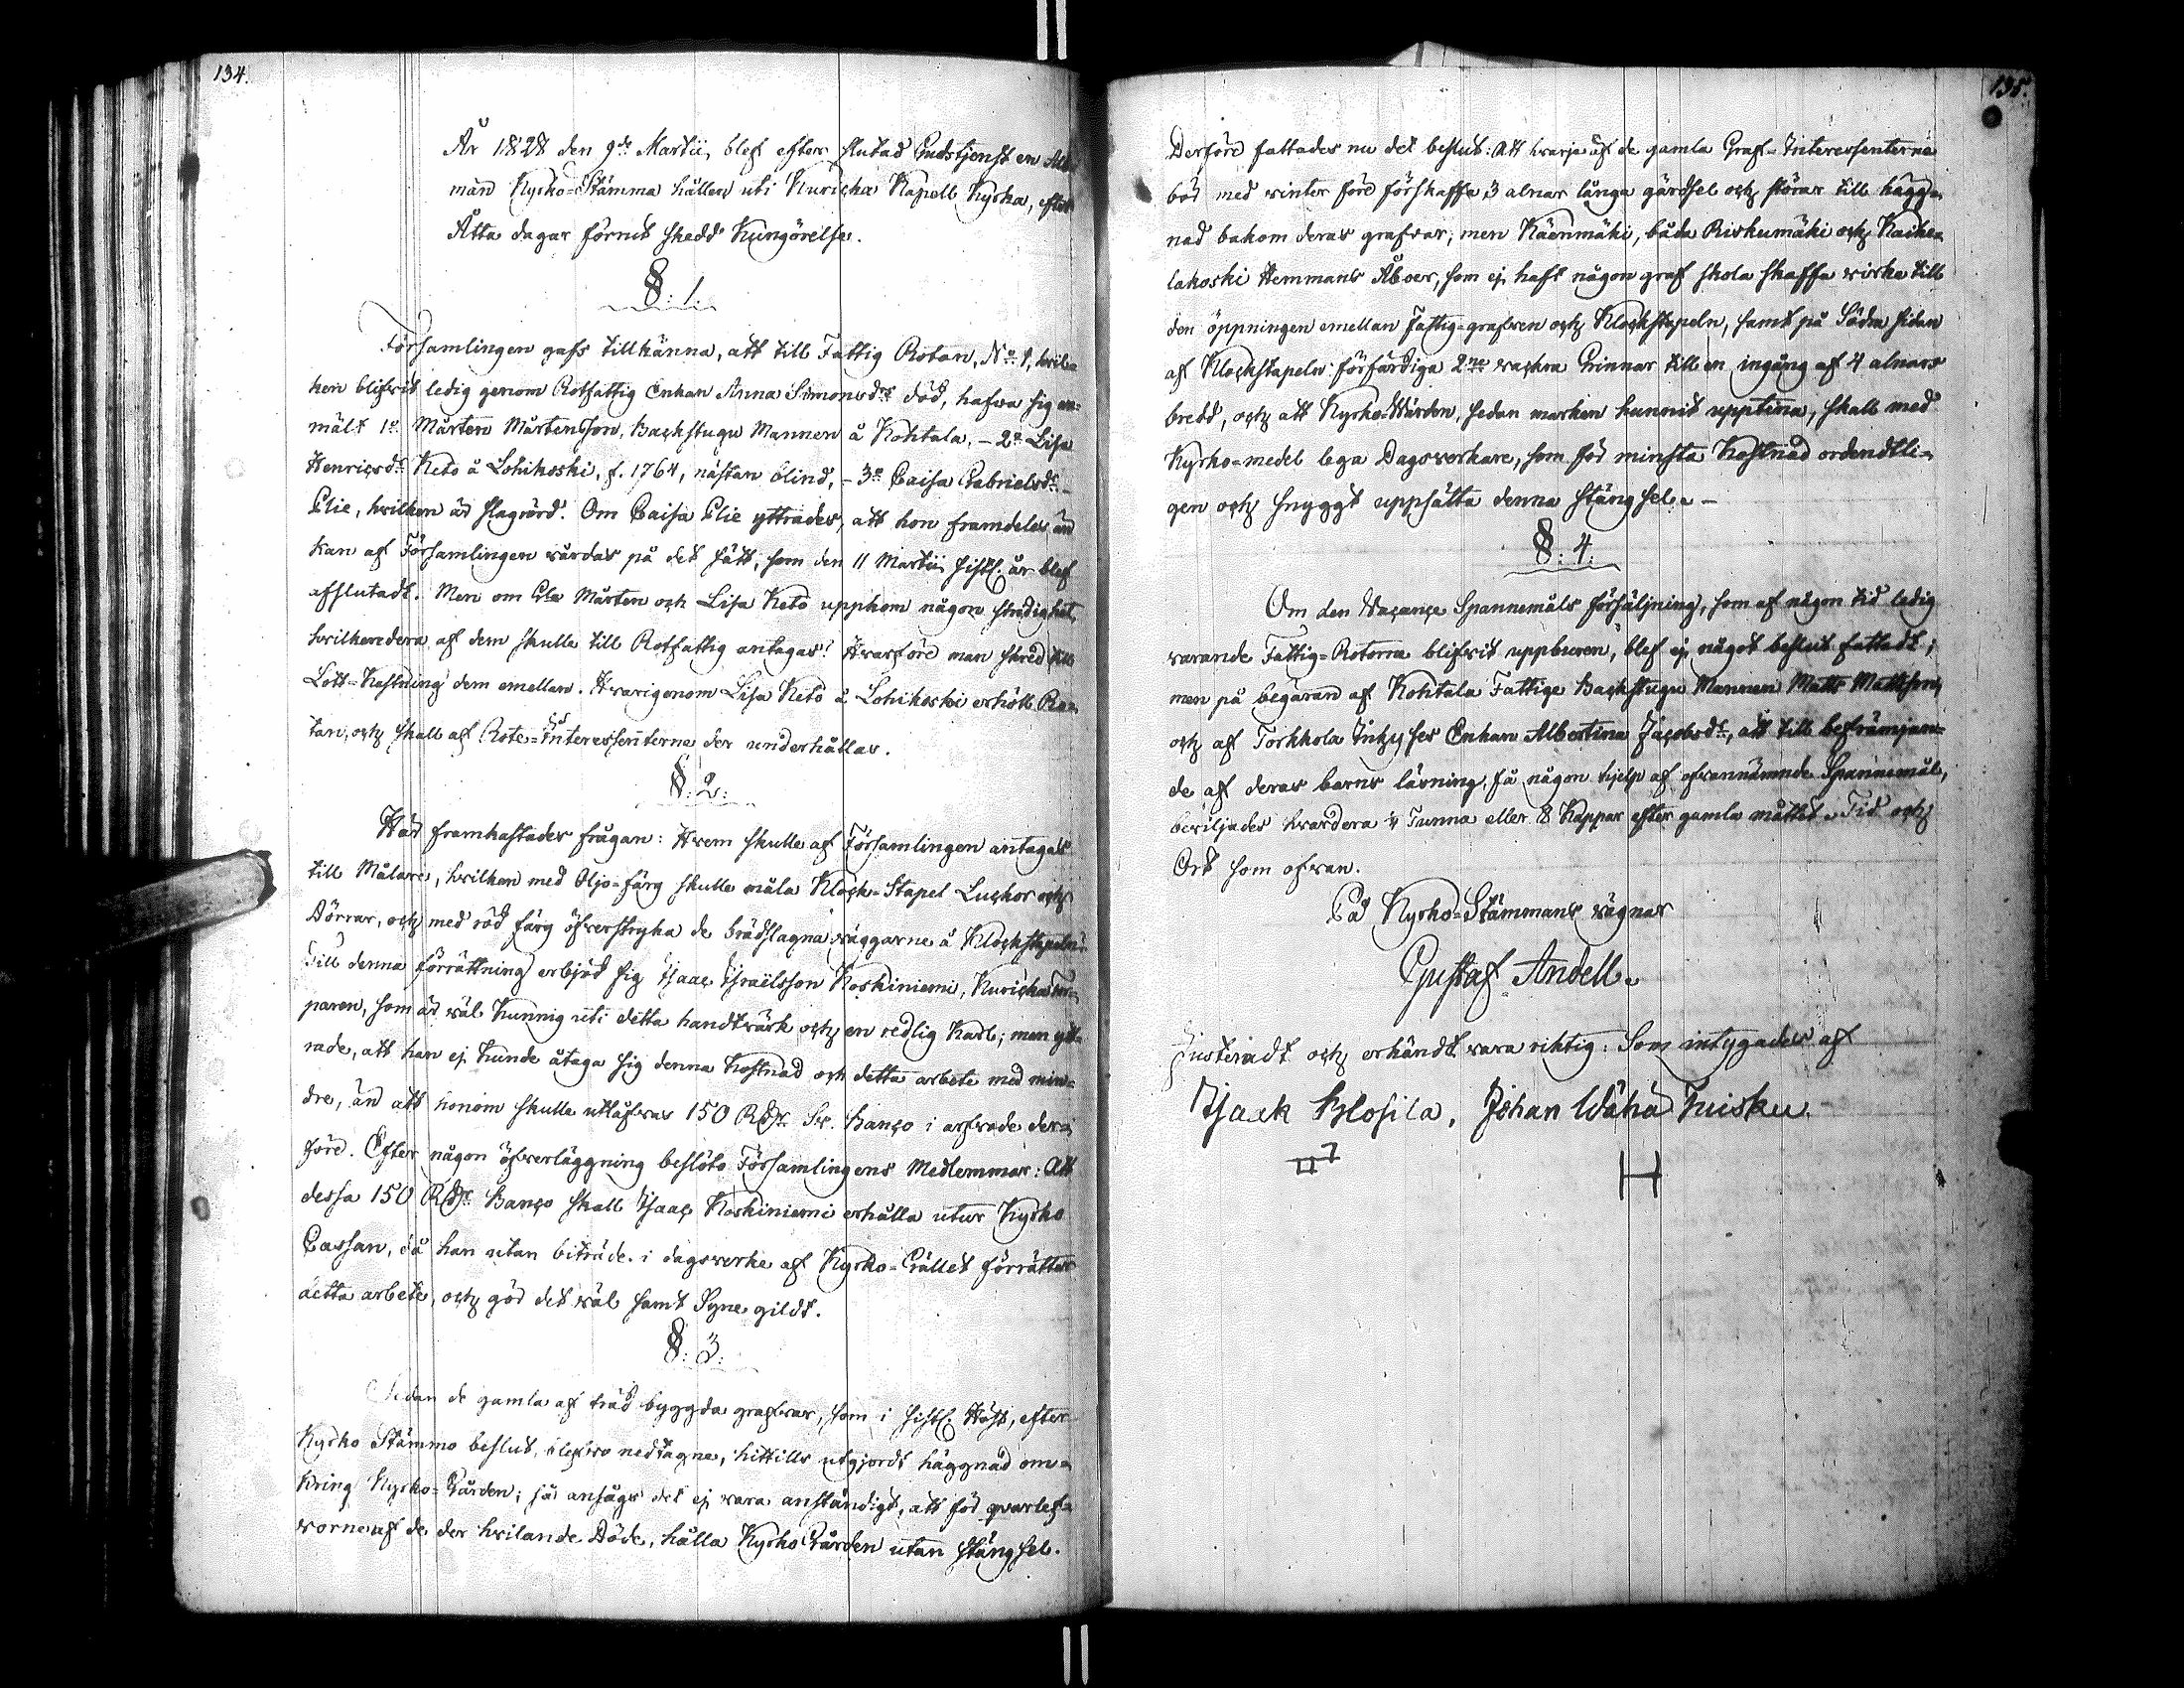 134.
År 1828 den 9de Martii, blef efter slutad Gudstjenst en All-
män Kyrko-Stämma hållen uti Kuricka Kapell Kyrka, efter
Åtta dagar förrut skedd Kungörelse.
§: 1:
Församlingen gafs tillkänna, att till Fattig Rotan, No 1, hvil-
ken blifvit ledig genom Rotfattig Enkan Anna Simonsdrs död, hafva sig an-
mält 1o Mårten Mårtensson, Backstugu Mannen å Kohtala, - 2o Lisa
Henricsdr Keto å Lohikoski, f. 1764, nästan blind, - 3o Caisa Gabrielsdr
Elie, hvilken är slagrörd. Om Caisa Elie yttrades, att hon framdeles än
kan af Församlingen vårdas på det sätt, som den 11 Martii sistl. år blef
afslutadt. Men om Mårten och Lisa Keto uppkom någon stridighet,
hvilkendera af dem skulle till Rotfattig antagas? Hvarföre man skred till
Lott-Kastning dem emellan. Hvarigenom Lisa Keto å Lohikoski erhöll Ro-
tan, och skall af Rote-Interessenterne der underhållas.
§: 2:
Här framkastades frågan: Hvem skulle af Församlingen antagas
till Målare, hvilken med Oljo-färg skulle måla Klock-Stapel Luckor och
Dörrar, och med röd färg öfverstryka de brädslagna väggarne å Klockstapeln?
Till denna förrättning erbjöd sig Isaac Israelsson Koskiniemi, Kuricka Tor-
paren, som är väl kunnig uti detta handtvärk och en redlig Karl; men ytt-
rade, att han ej kunde åtaga sig denna kostnad och detta arbete med min-
dre, än att honom skulle utlåfvas 150 Rdr Sv. Banco i arfvode der-
före. Efter någon öfverläggning beslöto Församlingens Medlemmar: Att
dessa 150 Rdr Banco skall Isaac Koskiniemi erhålla utur Kyrko
Cassan, då han utan biträde i dagsverke af Kyrko-Gället förrättar
detta arbete, och gör det väl samt Syne gildt.
§: 3:
Sedan de gamla af träd byggda grafvar, som i sistl. Höst, efter
Kyrko Stämmo beslut, blefvo nedtagne, hittills utgjordt häggnad om-
kring Kyrko-Gården; så ansågs det ej vara anständigt, att för qvarlef-
vorne af de der hvilande Döde, hålla Kyrko Gården utan stängsel.
135.
Derföre fattades nu det beslut: Att hvarje af de gamla Graf-Interessenterne
bör med vinter före förskaffa 3 alnar långa gärdsel och störar till hägg-
nad bakom deras grafvar; men Käenmäki, båda Riskumäki och Kacke-
lakoski Hemmans Åboer, som ej haft någon graf skola skaffa virke till
den öppningen emellan Fattig-grafven och Klockstapeln, samt på Södra sidan
af Klockstapeln förfärdiga 2ne vackra Grinnar till en ingång af 4 alnars
bredd, och att Kyrko-Wärden, sedan marken hunnit upptina, skall med
Kyrko-medel lega Dagsverkare, som för minsta Kostnad ordendtli-
gen och snyggt uppsätta denna stängsel. -
§: 4:
Om den Vacance Spannemåls försäljning, som af någon tid ledig
varande Fattig-Roterna blifvit uppburen, blef ej något beslut fattadt;
men på begäran af Kohtala Fattige Backstugu Mannen Matts Mattsson,
och af Torkkola Inhyses Enkan Albertina Jacobsdr, att till befrämjan-
de af deras barns läsning, få någon hjelp af ofvannämnde Spannemål,
beviljades hvardera 1/4 Tunna eller 8 Kappar efter gamla måttet. Tid och
Ort som ofvan.
På Kyrko-Stämmans vägnar
Gustaf Andell.
Justeradt och erkändt vara riktig: Som intygades af
Isaak Klosila, Johan Wähä Tuisku.
H